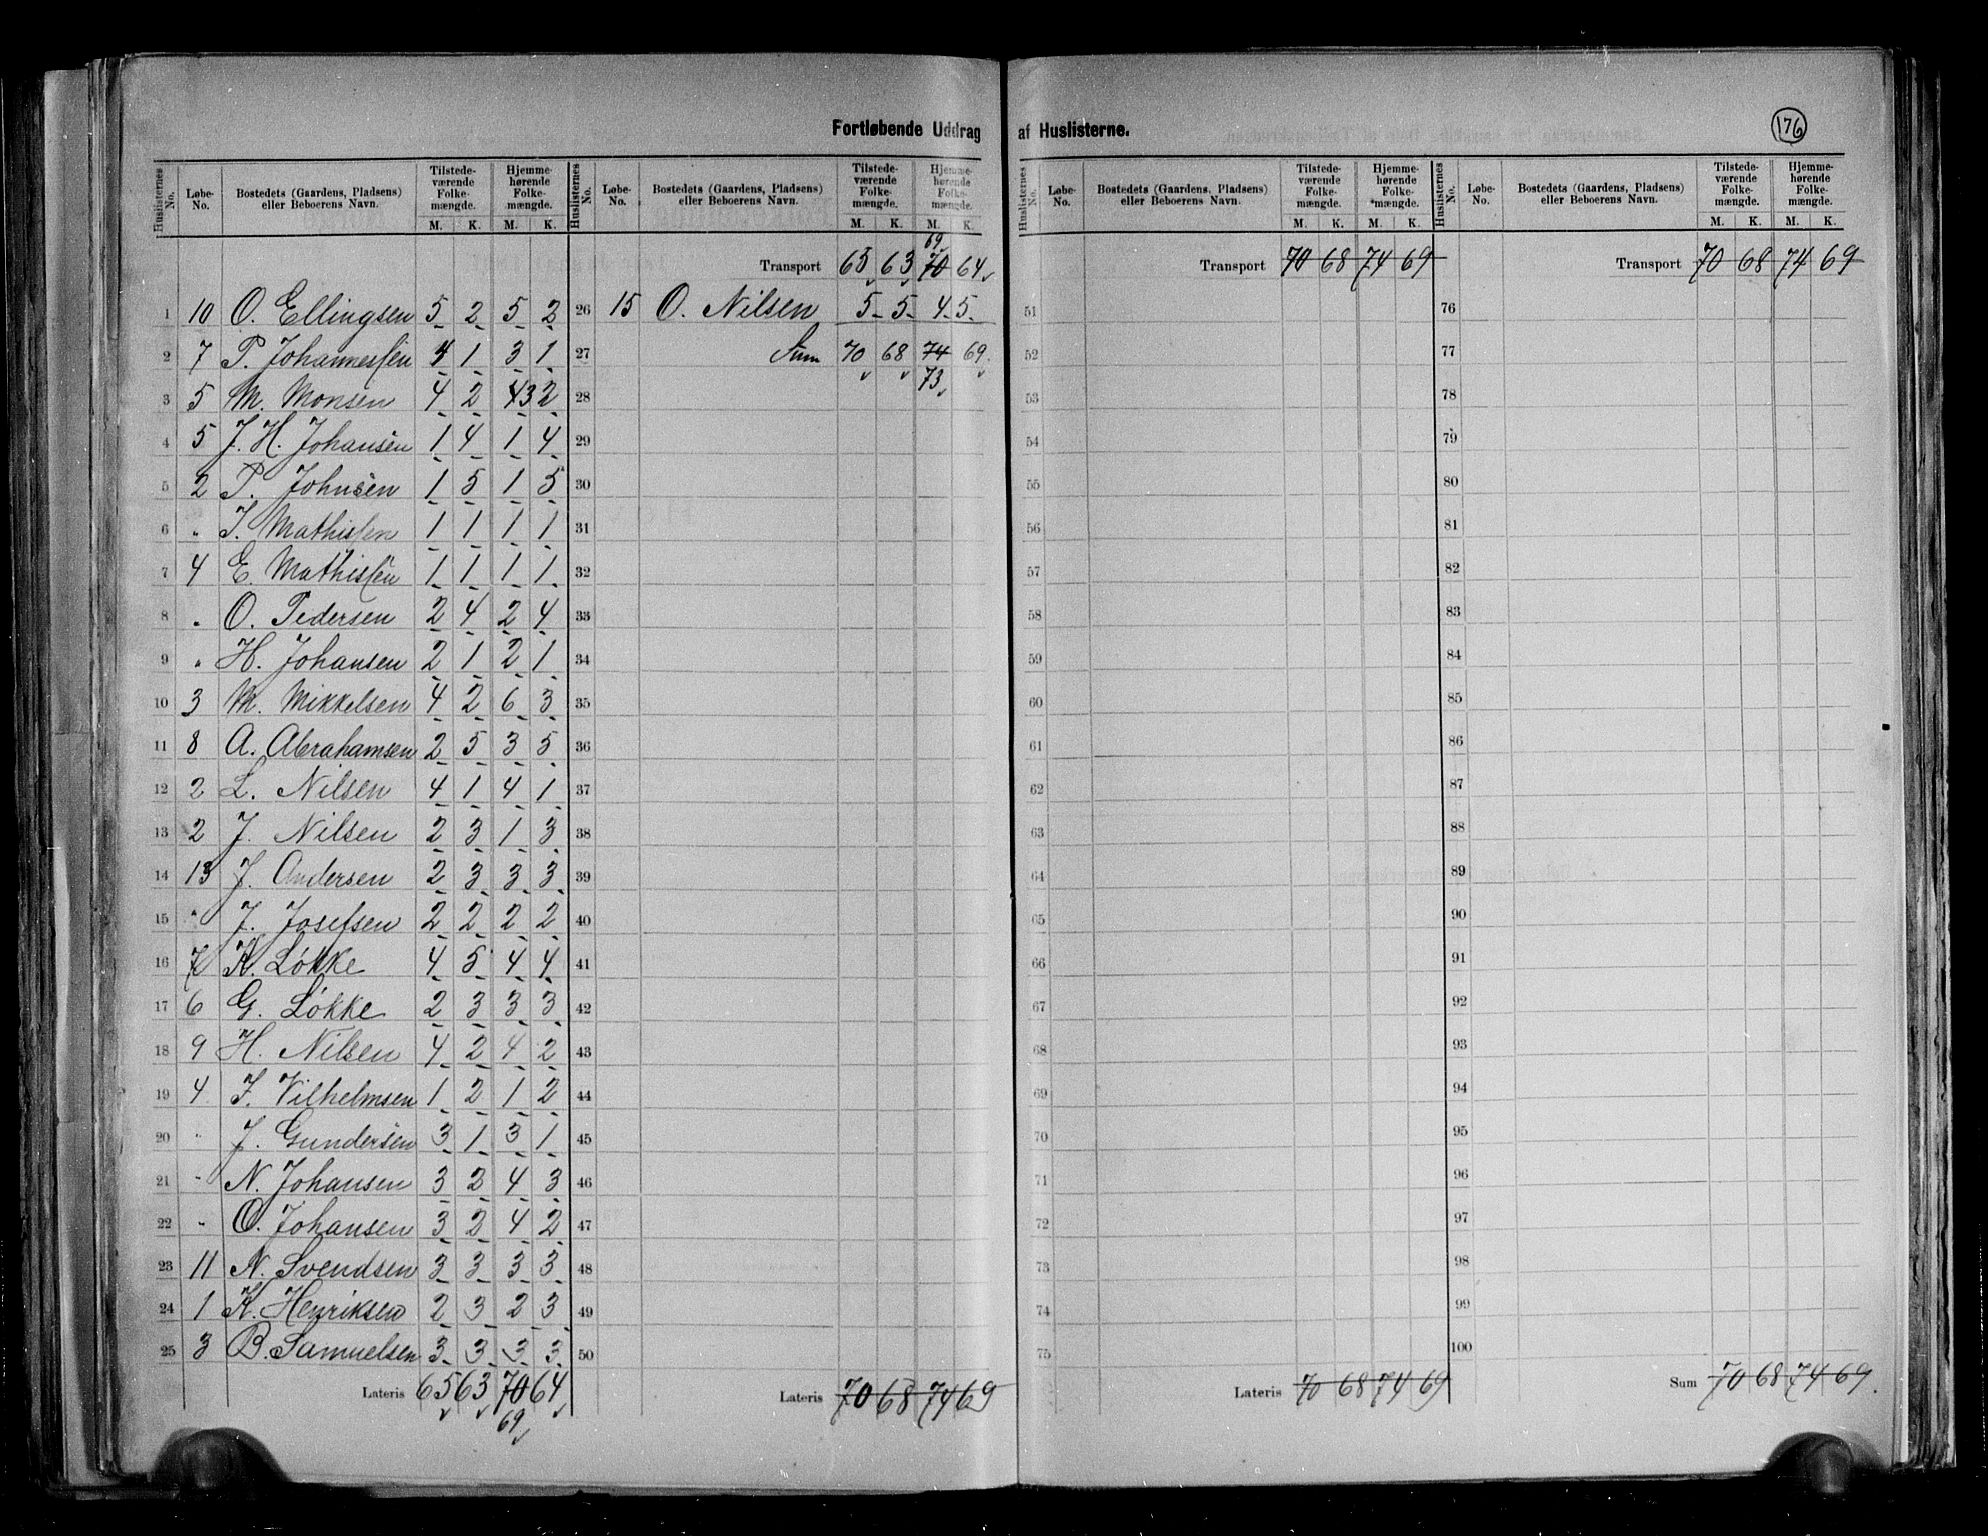 Fortløbende Uddrag af Huslisterne.
176
Huslisternes No. | Løbe-No. | Bostedets (Gaardens, Pladsens) eller Beboerens Navn. | Tilstedeværende Folkemængde. M. K. | Hjemmehørende Folkemængde. M. K.
1 10 O. Ellingsen 5 2 5 2
2 7 P. Johannessen 4 1 3 1
3 5 M. Monsen 4 2 4 3 2
4 5 J. H. Johansen 1 4 1 4
5 2 P. Johnsen 1 5 1 5
6 " J. Mathissen 1 1 1 1
7 4 E. Mathissen 1 1 1 1
8 " O. Pedersen 2 4 2 4
9 " H. Johansen 2 1 2 1
10 3 M. Mikkelsen 4 2 6 3
11 8 A. Abrahamsen 2 5 3 5
12 2 L. Nilsen 4 1 4 1
13 2 J. Nilsen 2 3 1 3
14 13 J. Andersen 2 3 3 3
15 " J. Josefsen 2 2 2 2
16 7 K. Løkke 4 5 4 4
17 6 G. Løkke 2 3 3 3
18 9 H. Nilsen 4 2 4 2
19 4 J. Vilhelmsen 1 2 1 2
20 " J. Gundersen 3 1 3 1
21 " N. Johansen 3 2 4 3
22 " O. Johansen 3 2 4 2
23 11 N. Svendsen 3 3 3 3
24 1 K. Henriksen 2 3 2 3
25 3 B. Samuelsen 3 3 3 3
Lateris 65 63 70 64
69
Huslisternes No. | Løbe-No. | Bostedets (Gaardens, Pladsens) eller Beboerens Navn. | Tilstedeværende Folkemængde. M. K. | Hjemmehørende Folkemængde. M. K.
69
Transport 65 63 70 64
26 15 O. Nilsen 5 5 4 5
27 Sum 70 68 74 69
73
28
29
30
31
32
33
34
35
36
37
38
39
40
41
42
43
44
45
46
47
48
49
50
Lateris 70 68 74 69
Huslisternes No. | Løbe-No. | Bostedets (Gaardens, Pladsens) eller Beboerens Navn. | Tilstedeværende Folkemængde. M. K. | Hjemmehørende Folkemængde. M. K.
Transport 70 68 74 69
51
52
53
54
55
56
57
58
59
60
61
62
63
64
65
66
67
68
69
70
71
72
73
74
75
Lateris 70 68 74 69
Huslisternes No. | Løbe-No. | Bostedets (Gaardens, Pladsens) eller Beboerens Navn. | Tilstedeværende Folkemængde. M. K. | Hjemmehørende Folkemængde. M. K.
Transport 70 68 74 69
76
77
78
79
80
81
82
83
84
85
86
87
88
89
90
91
92
93
94
95
96
97
98
99
100
Sum 70 68 74 69.